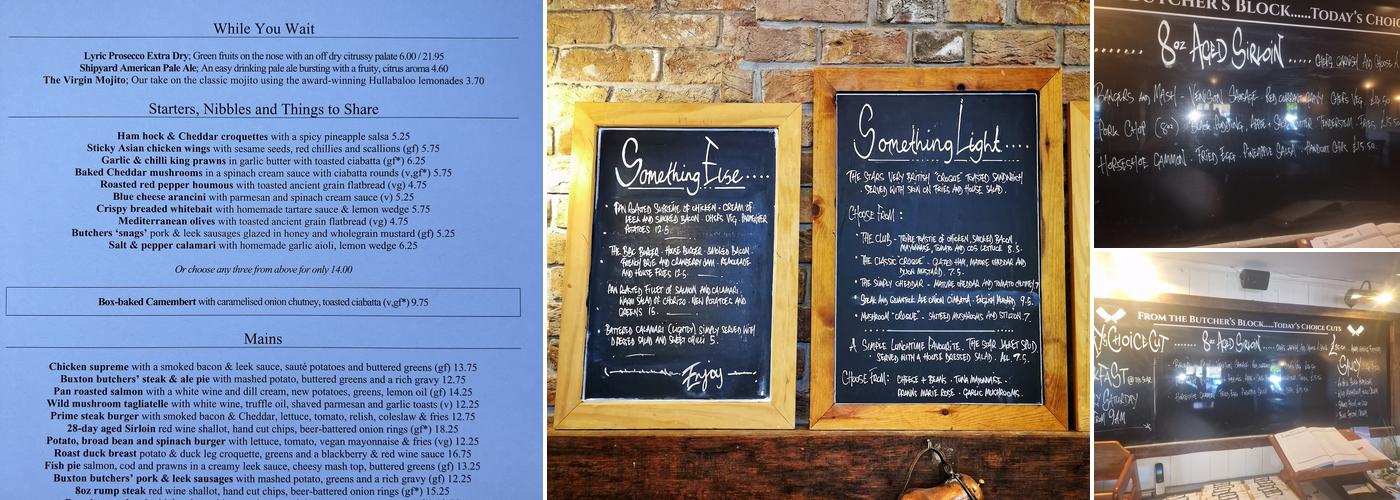 While You Wait
Lyric Prosecco Extra Dry; Green fruits on the nose with an off dry citrussy palate 6.00 / 21.95
Shipyard American Pale Ale; An easy drinking pale ale bursting with a fruity, citrus aroma 4.60
The Virgin Mojito; Our take on the classic mojito using the award-winning Hullabaloo lemonades 3.70
Starters, Nibbles and Things to Share
Ham hock & Cheddar croquettes with a spicy pineapple salsa 5.25
Sticky Asian chicken wings with sesame seeds, red chillies and scallions (gf) 5.75
Garlic & chilli king prawns in garlic butter with toasted ciabatta (gf*) 6.25
Baked Cheddar mushrooms in a spinach cream sauce with ciabatta rounds (v,gf*) 5.75
Roasted red pepper houmous with toasted ancient grain flatbread (vg) 4.75
Blue cheese arancini with parmesan and spinach cream sauce (v) 5.25
Crispy breaded whitebait with homemade tartare sauce & lemon wedge 5.75
Mediterranean olives with toasted ancient grain flatbread (vg) 4.75
Butchers ‘snags’ pork & leek sausages glazed in honey and wholegrain mustard (gf) 5.25
Salt & pepper calamari with homemade garlic aioli, lemon wedge 6.25
Or choose any three from above for only 14.00
Box-baked Camembert with caramelised onion chutney, toasted ciabatta (v,gf*) 9.75
Mains
Chicken supreme with a smoked bacon & leek sauce, sauté potatoes and buttered greens (gf) 13.75
Buxton butchers’ steak & ale pie with mashed potato, buttered greens and a rich gravy 12.75
Pan roasted salmon with a white wine and dill cream, new potatoes, greens, lemon oil (gf) 14.25
Wild mushroom tagliatelle with white wine, truffle oil, shaved parmesan and garlic toasts (v) 12.25
Prime steak burger with smoked bacon & Cheddar, lettuce, tomato, relish, coleslaw & fries 12.75
28-day aged Sirloin red wine shallot, hand cut chips, beer-battered onion rings (gf*) 18.25
Potato, broad bean and spinach burger with lettuce, tomato, vegan mayonnaise & fries (vg) 12.25
Roast duck breast potato & duck leg croquette, greens and a blackberry & red wine sauce 16.75
Fish pie salmon, cod and prawns in a creamy leek sauce, cheesy mash top, buttered greens (gf) 13.25
Buxton butchers’ pork & leek sausages with mashed potato, greens and a rich gravy (gf) 12.25
8oz rump steak red wine shallot, hand cut chips, beer-battered onion rings (gf*) 15.25
Something Else....
• Pan Roasted Supreme of Chicken - Cream of
Leek and Smoked Bacon - Chefs Veg.
Potatoes 12.5
• The BBC Burger - House Burger - Smoked Bacon
French Brie and Cranberry Jam - Remoulade
and House Fries 12.5
Pan Roasted Fillet of Salmon and Calamari
Warm Salad of Chorizo - New Potatoes and
Greens 15.
• Battered Calamari (Lightly) Simply Served with
Dressed Salad and Sweet Chilli 5.
Enjoy
Something Light....
The Stars Very British "Croque" Toasted Sandwich
Served with Skin on Fries and House Salad.
Choose From:
• The Club - Triple Toastie of Chicken, Smoked Bacon,
Mayonnaise, Tomato and Cos Lettuce 8.5
• The Classic "Croque" - Glazed Ham, Mature Cheddar and
Dijon Mustard. 7.5
• The Simply Cheddar - Mature Cheddar and Tomato Chutney 7
• Steak and Ale Onion Ciabatta - English Mustard 9.5
• Mushroom "Croque" - Sauteed Mushrooms and Stilton 7.
A Simple Lunchtime Favourite. The Star Jacket Spud
Served with a House Dressed Salad. All 7.5.
Choose From: Cheese + Beans - Tuna Mayonnaise -
Prawns Marie Rose - Garlic Mushrooms.
Butcher's Block......Today's Choi
....... 8oz Aged Sirloin .....
Bangers and Mash - Venison Sausage - Red Currant Gravy - Chefs Veg
Pork Chop (8oz) - Black Pudding, Apple +
Horseshoe Gammon - Fried Egg - Pineapple Salsa - Handcut Chips £15.50
From the Butcher's Block......Today's Choice Cuts
Choice Cut ....... 8oz Aged Sirloin
Saturday
9am